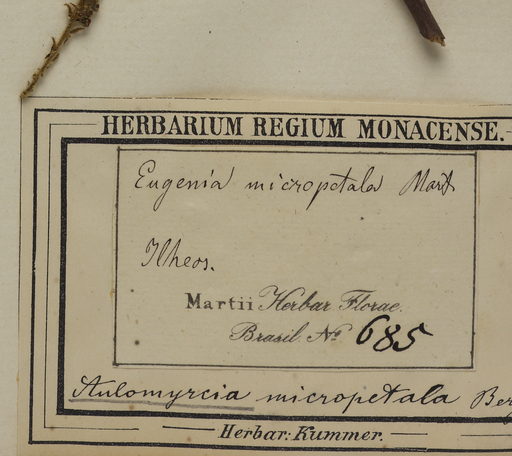 HERBARIUM REGIUM MONACENSE.
Eugenia micropetala Mart
Ilheos.
Martii Herbar. Florae
Brasil. No 685
Aulomyrcia micropetala Berg
Herbar: Kummer.